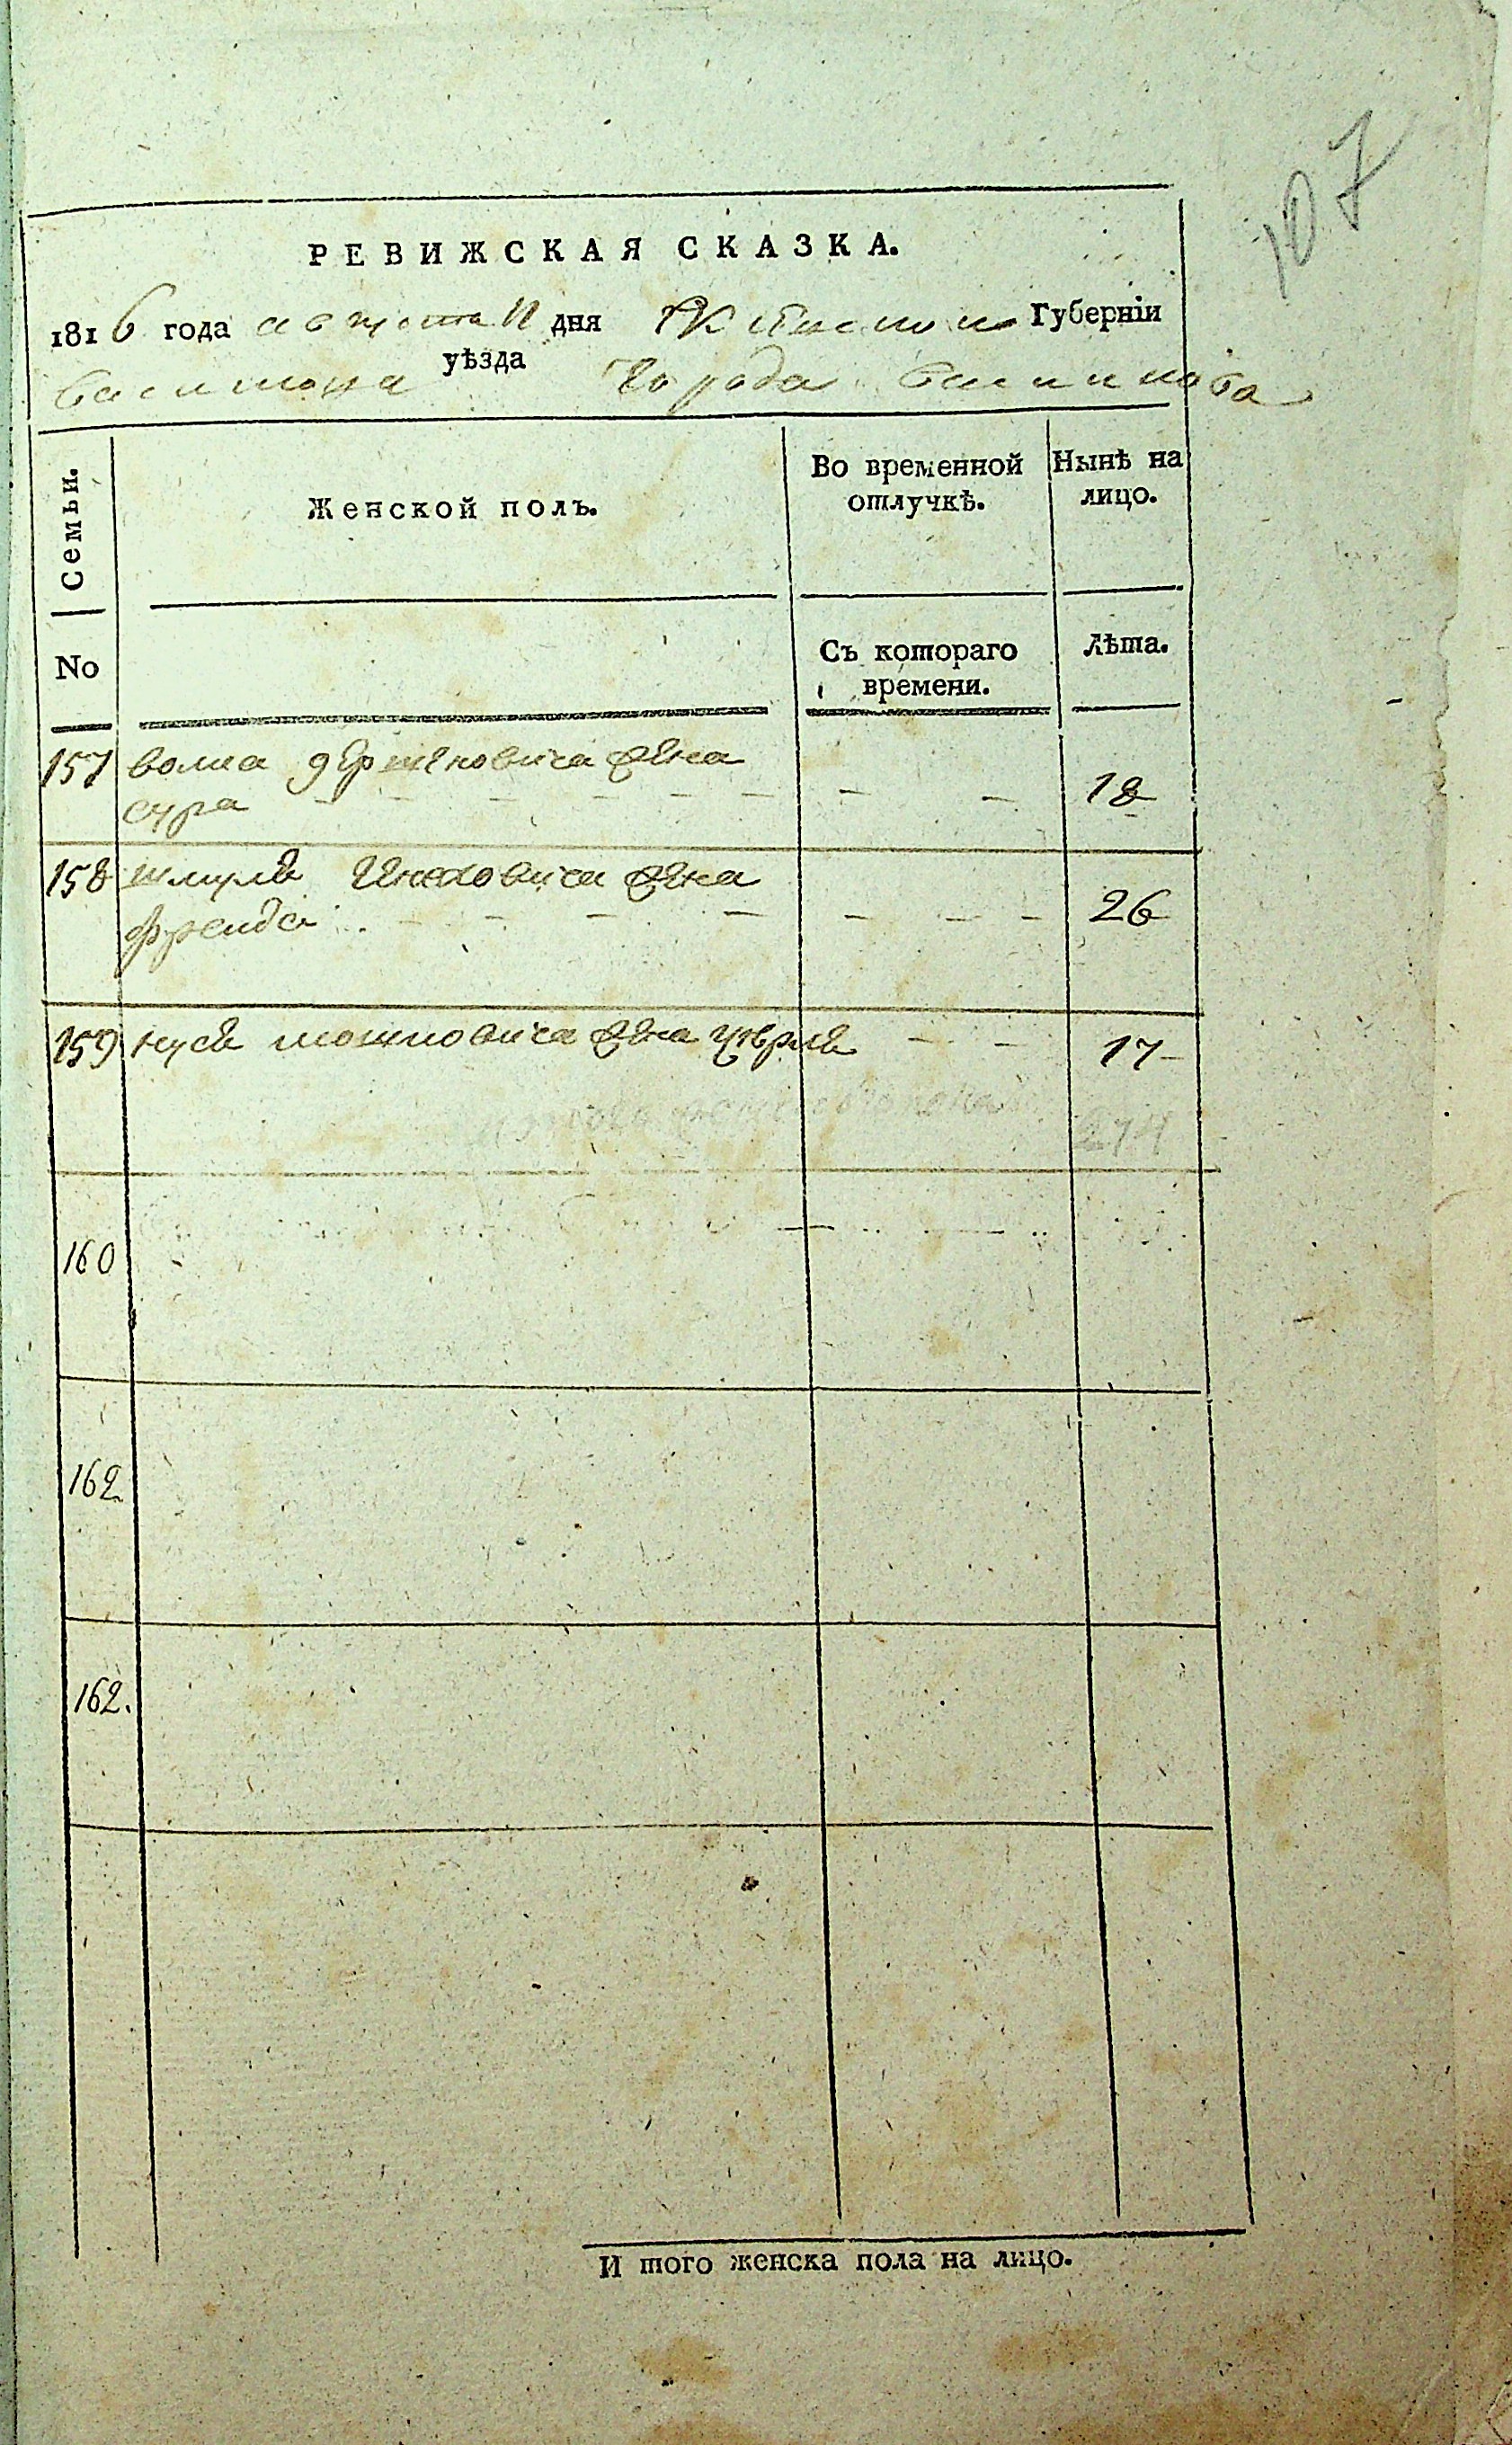 107
РЕВИЖСКАЯ СКАЗКА.
1816 года августа 11 дня Киевской Губерніи
уѣзда города
Семьи.
Женской полъ.
Во временной
отлучкѣ.
Нынѣ на
лицо.
No
Съ котораго
времени.
Лѣта.
157 волка жена
сура 18
158 шмуля жена
фрейда 26
159 нуся мошковича жена 17
160
162
162.
И того женска пола на лицо.